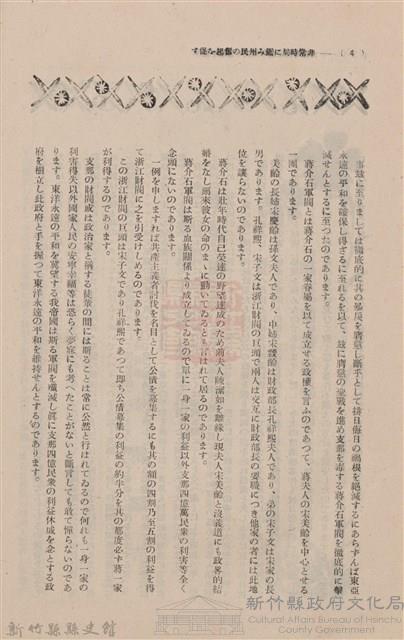 非常時局に鑑み州民の奮起を促す
(4)
事玆に至りましては徹底的に其の暴戻を膺懲し斷乎として排日侮日の禍根を絶滅するにあらずんば東亞
永遠の平和を確保し得ざるに至れるを以て、玆に膺懲の聖戰を進め支那を毒する蔣介石軍閥を徹底的に擊
滅せんとするに至つたのであります。
蔣介石軍閥とは蔣介石の一家眷屬を以て成立せる政權を言ふのであつて、蔣夫人の宋美齡を中心とせる
一團であります。
美齡の長姉宋慶齡は孫文夫人であり、中姉宋靄齡は財政部長孔祥熙夫人であり、弟の宋子文は宋家の長
男であります。孔祥熙、宋子文は浙江財閥の巨頭で兩人は交互に財政部長の要職につき他家の者には此地
位を讓らないのであります。
蔣介石は壯年時代自己榮達の野望達成のため前夫人陳潔如を離緣し現夫人宋美齡と沒義道にも政畧的結
婚をなし爾來彼女の命のまゝに動いてゐるとも言はれて居るのであります。
蔣介石軍閥は斯る血族關係より成立してゐるので單に一身一家の利益以外支那四億萬民衆の利害等全く
念頭にないのであります。
一例を申しますれば共產主義者討伐を名目として公債を募集するにも其の額の四割乃至五割の利益を得
て浙江財閥に之を引受けしめるのであります。
この浙江財閥の巨頭は宋子文であり孔祥熙であつて卽ち公債募集の利益の約半分を其の都度必ず蔣一家
が利得するのであります。
支那の財閥或は政治家と稱する徒輩の間には斯ることは常に公然と行はれてゐるので何れも一身一家の
利害得失以外國家人民の安寧幸福等は恐らく夢寐にも考へたことがないと斷言しても敢て憚らないのであ
ります。東洋永遠の平和を冀望する我帝國は斯る軍閥を殲滅し眞に支那四億民衆の利益休戚を念とする政
府を樹立し此政府と手を握つて東洋永遠の平和を維持せんとするのであります。
新竹縣縣史館
新竹縣政府文化局
Cultural Affairs Bureau of Hsinchu
County Government